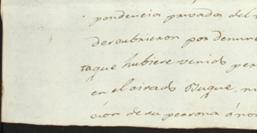 pondencia privada del
descubrieron por denun
ta que hubiere venido per
en el airado Buque, ni
ción de su persona á no